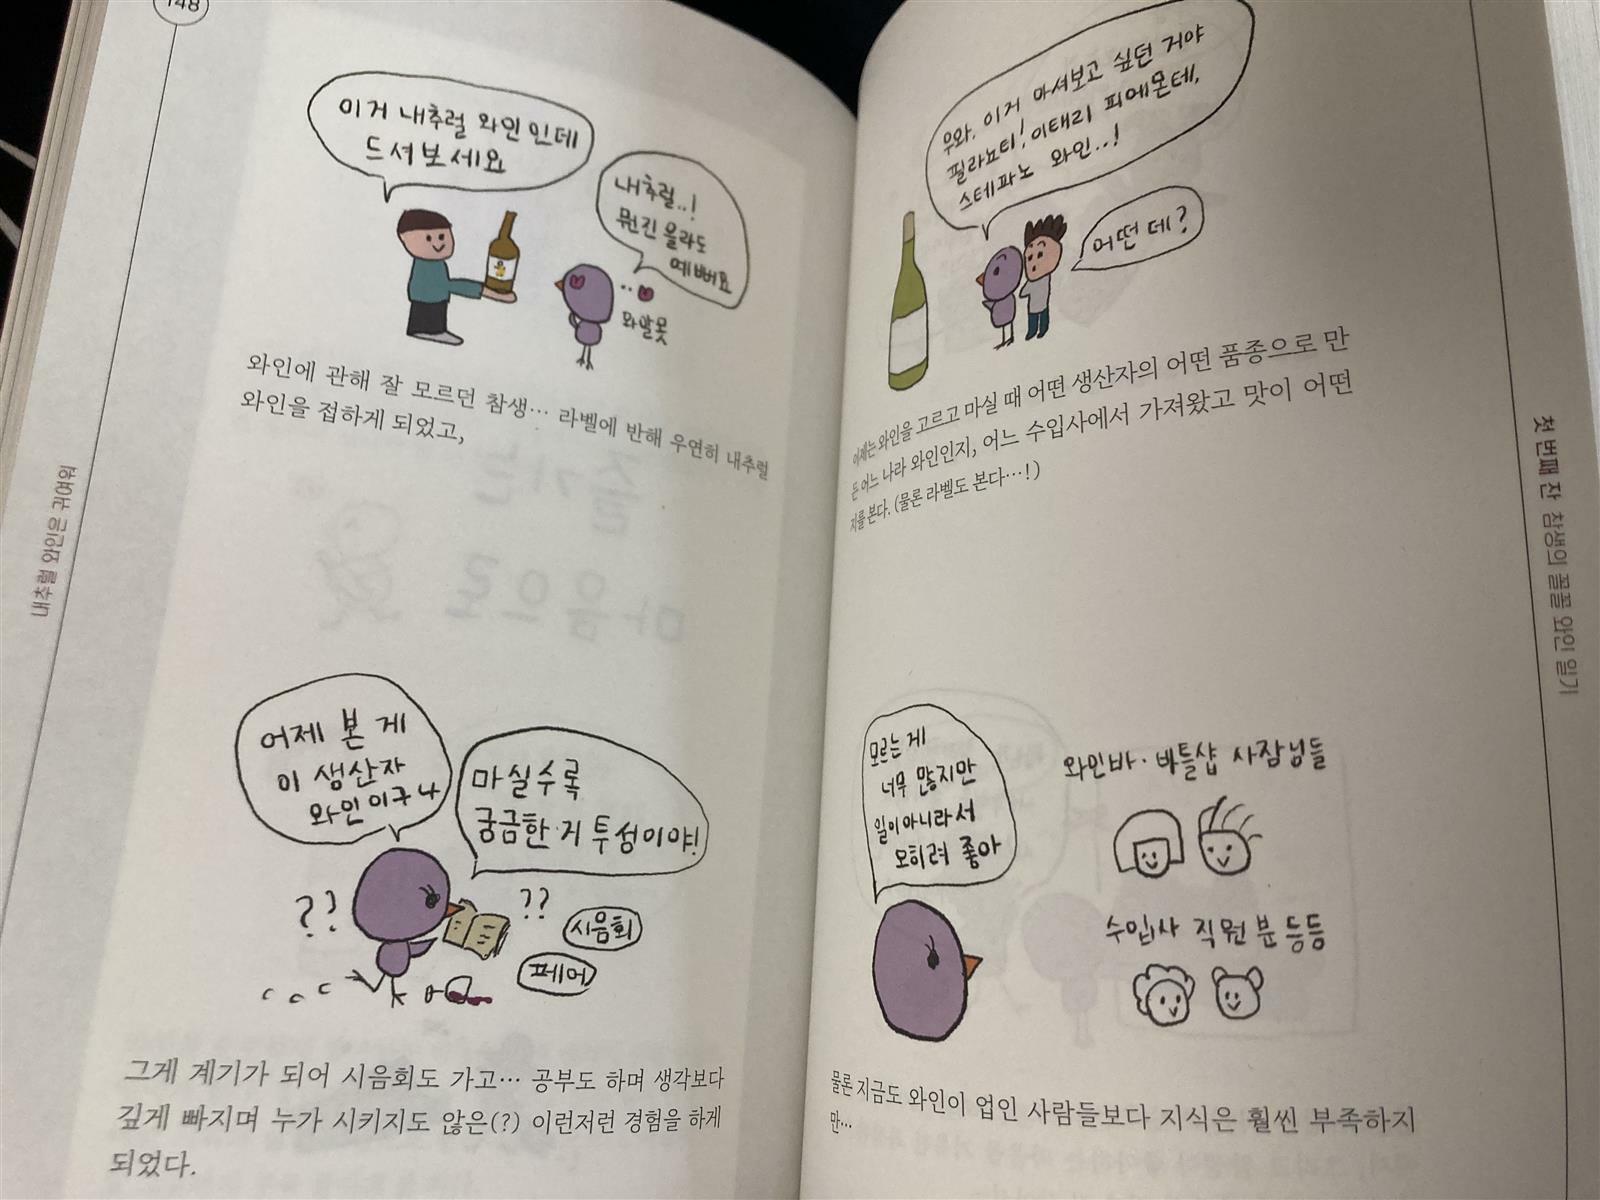 148
이거 내추럴 와인인데
드셔보세요
내추럴..!
뭔진 몰라도
예뻐요
와알못
와인에 관해 잘 모르던 참생… 라벨에 반해 우연히 내추럴
와인을 접하게 되었고,
어제 본 게
이 생산자
와인이구나
마실수록
궁금한 거 투성이야!
??
??
시음회
페어
그게 계기가 되어 시음회도 가고… 공부도 하며 생각보다
깊게 빠지며 누가 시키지도 않은(?) 이런저런 경험을 하게
되었다.
내추럴 와인은 귀여워
우와, 이거 마셔보고 싶던 거야
필라뇨티! 이태리 피에몬테,
스테파노 와인..!
어떤데?
이제는 와인을 고르고 마실 때 어떤 생산자의 어떤 품종으로 만
든 어느 나라 와인인지, 어느 수입사에서 가져왔고 맛이 어떤
지를 본다. (물론 라벨도 본다…!)
모르는 게
너무 많지만
일이 아니라서
오히려 좋아
와인바·바틀샵 사장님들
수입사 직원분 등등
물론 지금도 와인이 업인 사람들보다 지식은 훨씬 부족하지
만…
첫 번째 잔 참생의 꼴꼴 와인 일기